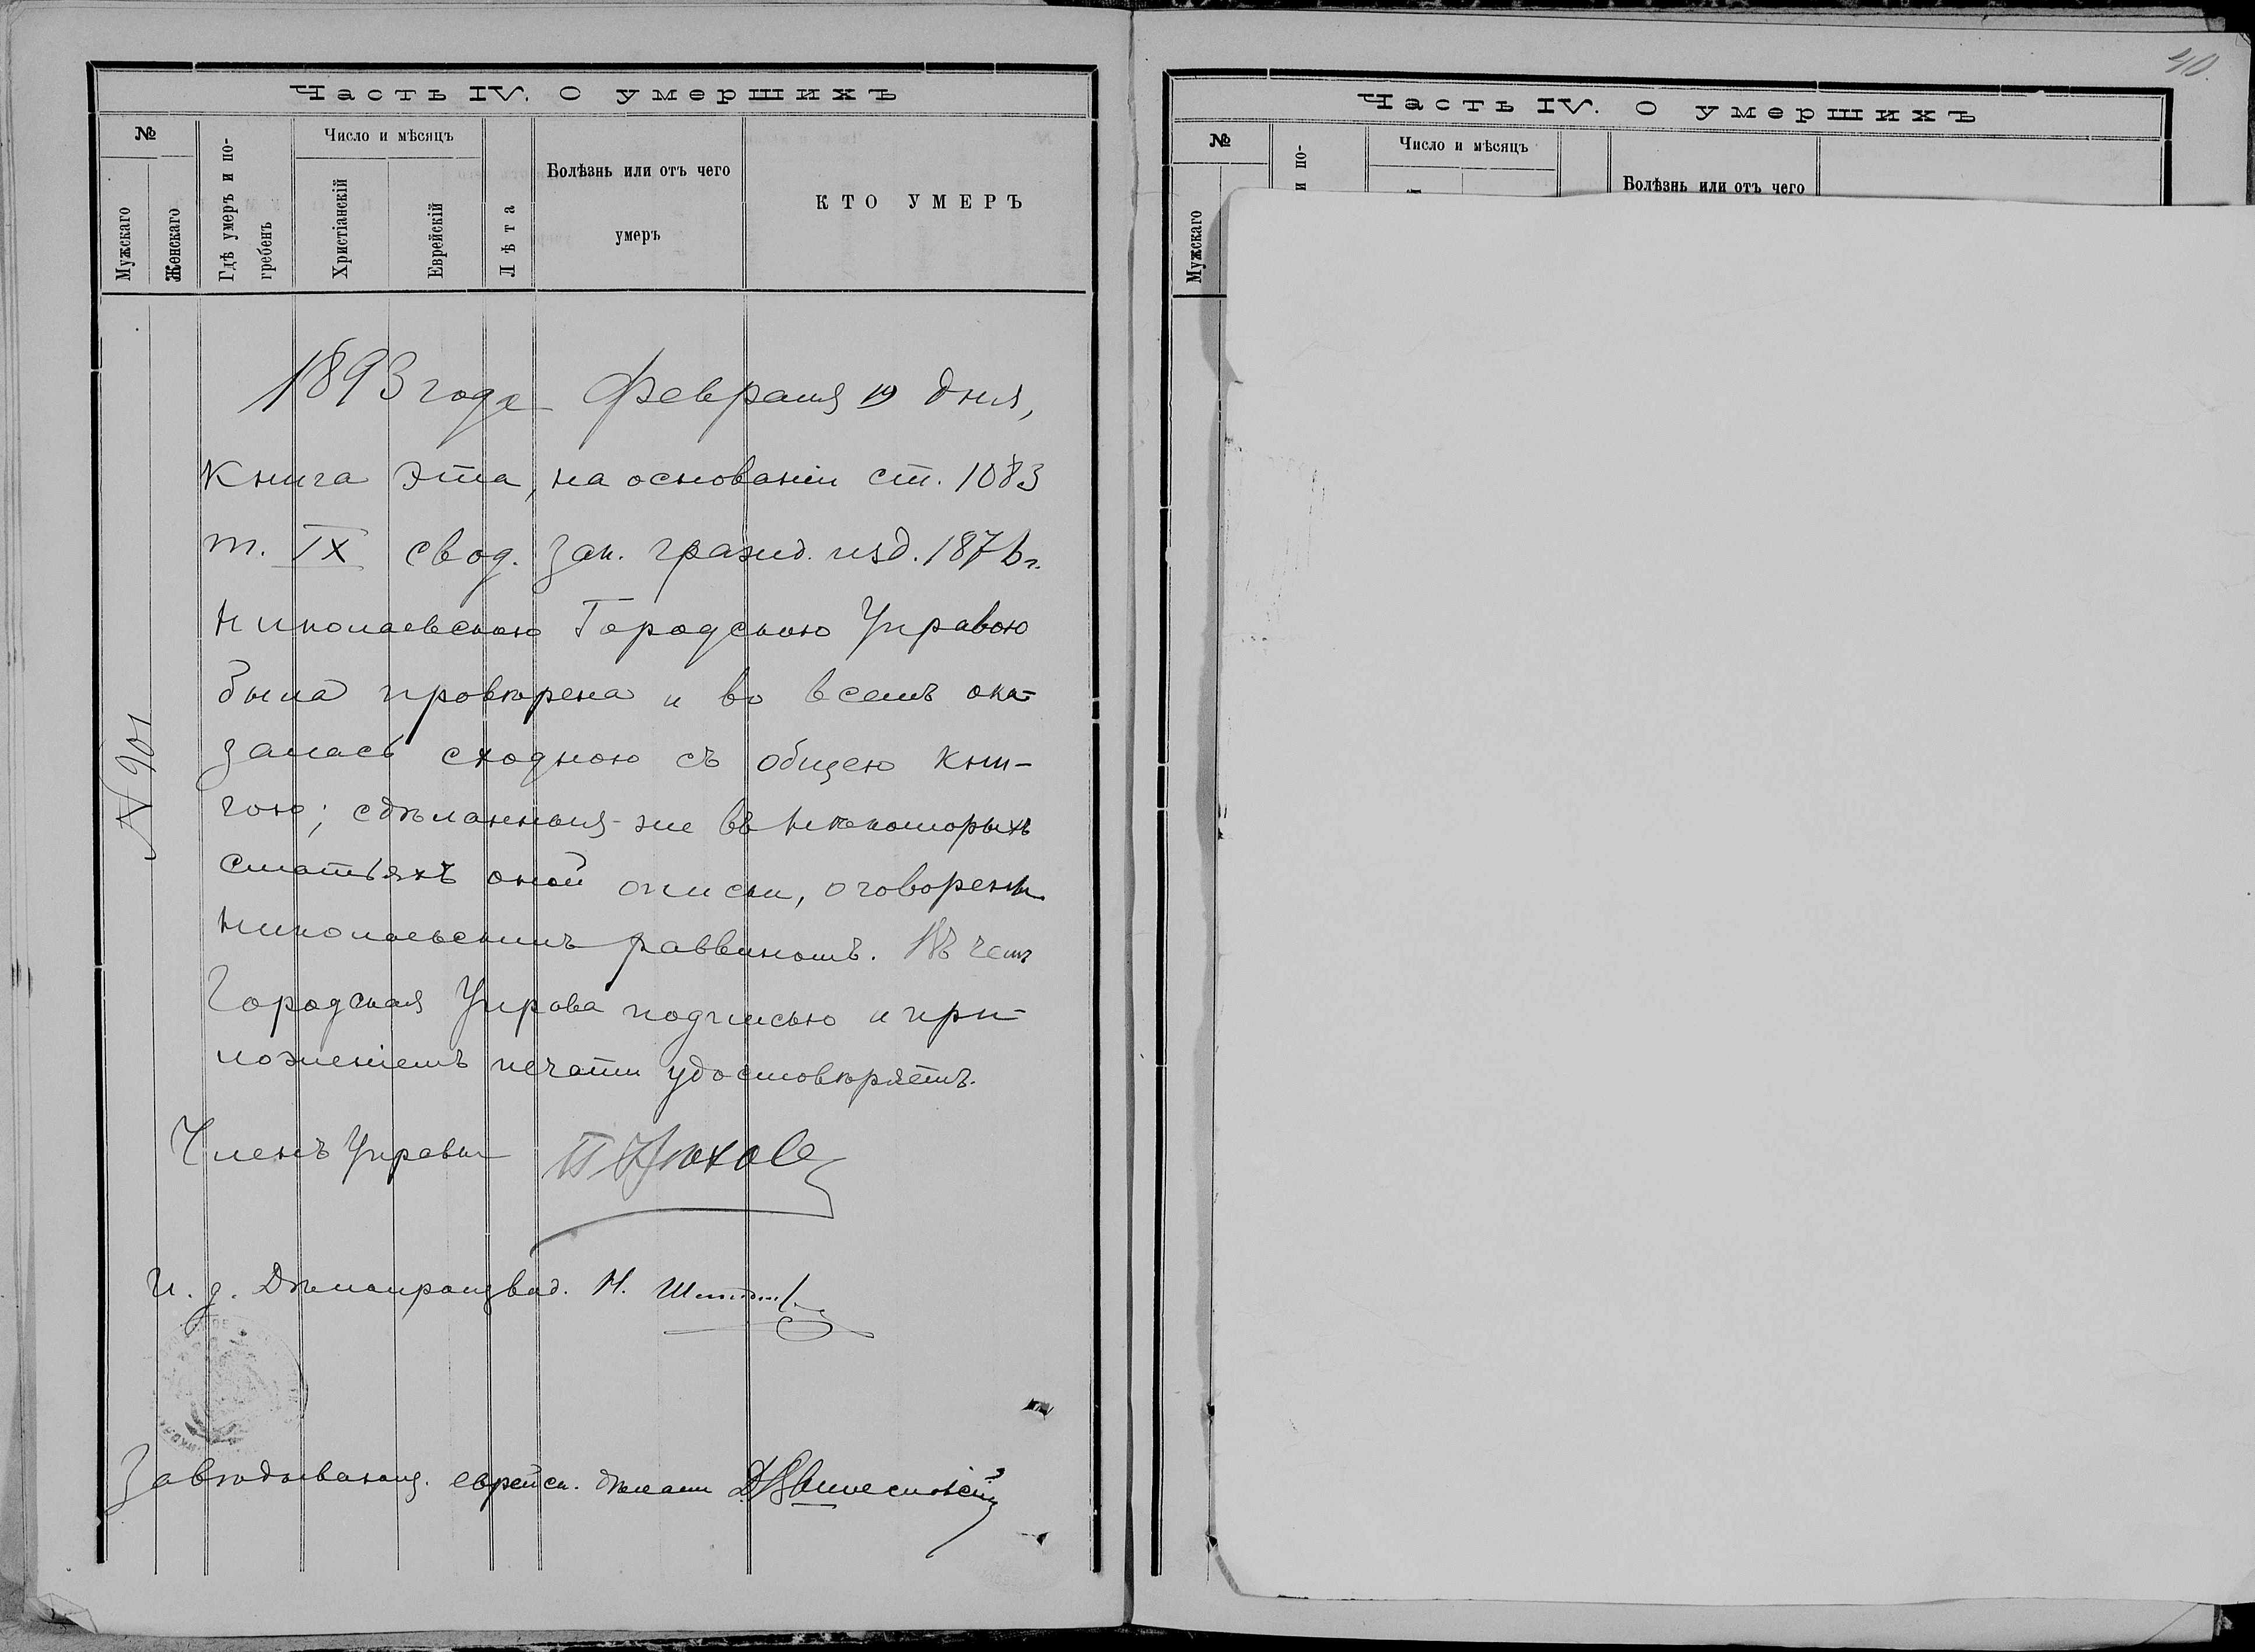 Часть IV. О умершихъ
№
Мужскаго
Женскаго
Гдѣ умеръ и по-
гребенъ
Число и мѣсяцъ
Христіанскій
Еврейскій
Лѣта
Болѣзнь или отъ чего
умеръ
КТО УМЕРЪ
1893 года Февраля 19 дня,
Книга эта, на основаніи ст. 1083
т. IX свод. зак. гражд. изд. 1876 г.
Николаевскою Городскою Управою
была провѣрена и во всемъ ока-
залась сходною съ общею кни-
гою; сдѣланныя-же въ нѣкоторыхъ
статьяхъ оной описки, оговорены
Николаевскимъ раввиномъ. Въ чемъ
Городская Управа подписью и при-
ложеніемъ печати удостовѣряетъ.
№ 901
Членъ Управы
И. д. Дѣлопроизвод. Н.
Завѣдывающ. еврейск. дѣлами
40.
Часть IV. О умершихъ
№
Мужскаго
и по-
Число и мѣсяцъ
Болѣзнь или отъ чего